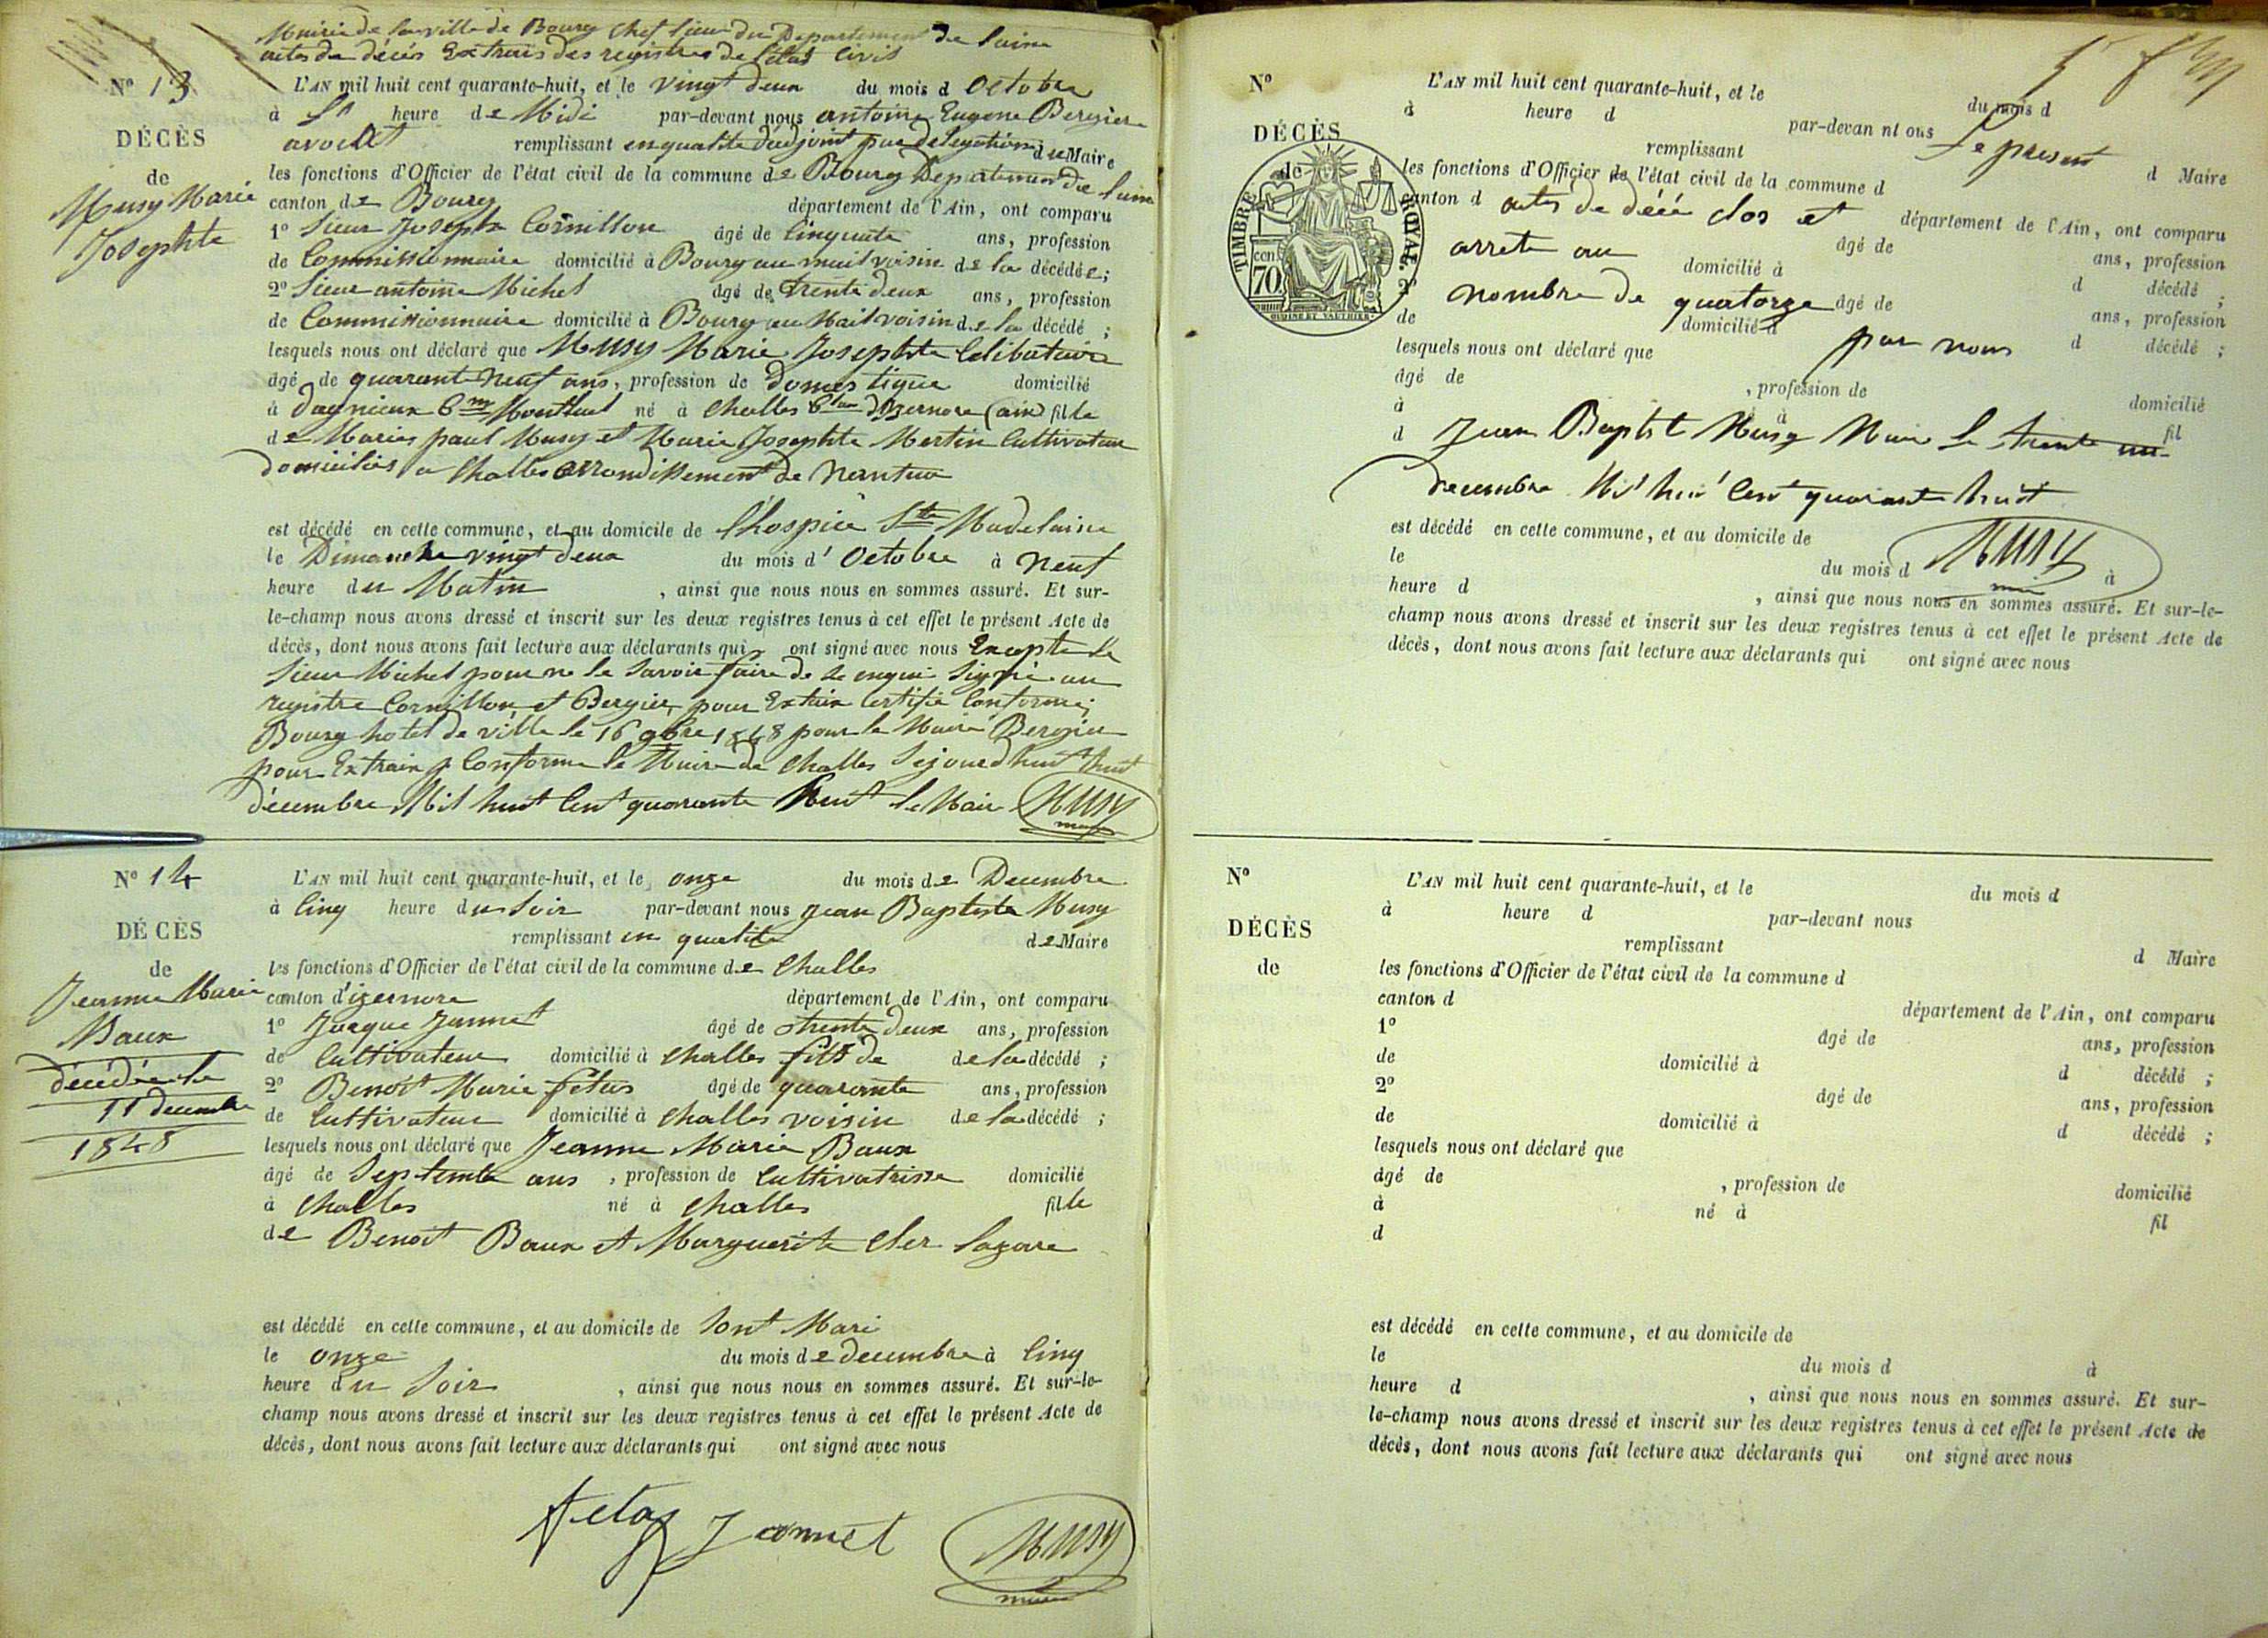 Mairie de la ville de Bourg Chef lieu du Departement de lain
actes de décés Extrais des registres de l'état Civil
Nº 13
DÉCÈS
de
Musy Marie
Josephte
L'AN mil huit cent quarante-huit, et le vingt deux du mois d Octobre
à heure de Midi par-devant nous antoine Eugene Bergier
avocat remplissant en qualité d'adjoint par délégation du Maire
les fonctions d'Officier de l'état civil de la commune de Bourg Departement de lain
canton de Bourg département de l'Ain, ont comparu
1º Sieur Joseph Cornillon âgé de Cinquante ans, profession
de Commissionnaire domicilié à Bourg au mail voisin de la décédée;
2º Sieur antoine Michel âgé de trente deux ans, profession
de Commissionnaire domicilié à Bourg au Mail voisin de la décédé ;
lesquels nous ont déclaré que Musy Marie Josephte Célibataire
âgé de quarante neuf ans, profession de domestique domicilié
à dagnieux Montluel né à Challes d'Izernore (ain) fille
de Marie paul Musy et Marie Josephte Martin Cultivateur
domiciliés a Challes arrondissement de Nantua
est décédé en cette commune, et au domicile de l'hospice Ste Madelaine
le Dimanche vingt deux du mois d' Octobre à neuf
heure du Matin , ainsi que nous nous en sommes assuré. Et sur-
le-champ nous avons dressé et inscrit sur les deux registres tenus à cet effet le présent Acte de
décès, dont nous avons fait lecture aux déclarants qui ont signé avec nous Excepté le
Sieur Michel pour ne le Savoir faire de ce enquis Signé au
registre Cornillon et Bergier, pour Extrait Certifié Conforme;
Bourg hotel de ville le 16 9bre 1848 pour le Maire Bergier
pour Extrait Conforme le Maire de Challes huit
décembre Mil huit Cent quarante huit le Maire Musy
Nº 14
DÉCÈS
de
Jeanne Marie
Baux
décédée le
11 decembre
1848
L'AN mil huit cent quarante-huit, et le onze du mois de Decembre
à Cinq heure du Soir par-devant nous Jean Baptiste Musy
remplissant en qualité de Maire
les fonctions d'Officier de l'état civil de la commune de Challes
canton d'izernore département de l'Ain, ont comparu
1º Jacque Jannet âgé de trente deux ans, profession
de Cultivateur domicilié à Challes fils de de la décédé ;
2º Benoit Marie fétas âgé de quarante ans, profession
de Cultivateur domicilié à Challes voisin de la décédé ;
lesquels nous ont déclaré que Jeanne Marie Baux
âgé de ans , profession de Cultivatrisse domicilié
à Challes né à Challes fille
de Benoit Baux et Marguerite
est décédé en cette commune, et au domicile de Sont Mari
le onze du mois de decembre à Cinq
heure du Soir , ainsi que nous nous en sommes assuré. Et sur-le-
champ nous avons dressé et inscrit sur les deux registres tenus à cet effet le présent Acte de
décès, dont nous avons fait lecture aux déclarants qui ont signé avec nous
fetas Jannet Musy
Nº
DÉCÈS
de
TIMBRE ROYAL.
cen
70
L'AN mil huit cent quarante-huit, et le du mois d
à heure d par-devan nt ous
Le present
remplissant d Maire
les fonctions d'Officier de l'état civil de la commune d
canton d département de l'Ain, ont comparu
actes de décé clos et
âgé de ans, profession
arrete au
domicilié à d décédé ;
nombre de quatorze
âgé de ans, profession
de domicilié à d décédé ;
par nous
lesquels nous ont déclaré que
âgé de , profession de domicilié
à à
d fil
Jean Baptist Musy Maire le trente un
decembre Mil huit Cent quarante huit
est décédé en cette commune, et au domicile de
Musy
le du mois d à
heure d , ainsi que nous nous en sommes assuré. Et sur-le-
champ nous avons dressé et inscrit sur les deux registres tenus à cet effet le présent Acte de
décès, dont nous avons fait lecture aux déclarants qui ont signé avec nous
Nº
DÉCÈS
de
L'AN mil huit cent quarante-huit, et le du mois d
à heure d par-devant nous
remplissant d Maire
les fonctions d'Officier de l'état civil de la commune d
canton d département de l'Ain, ont comparu
1º âgé de ans, profession
de domicilié à d décédé ;
2º âgé de ans, profession
de domicilié à d décédé ;
lesquels nous ont déclaré que
âgé de , profession de domicilié
à né à fil
d
est décédé en cette commune, et au domicile de
le du mois d à
heure d , ainsi que nous nous en sommes assuré. Et sur-
le-champ nous avons dressé et inscrit sur les deux registres tenus à cet effet le présent Acte de
décès, dont nous avons fait lecture aux déclarants qui ont signé avec nous